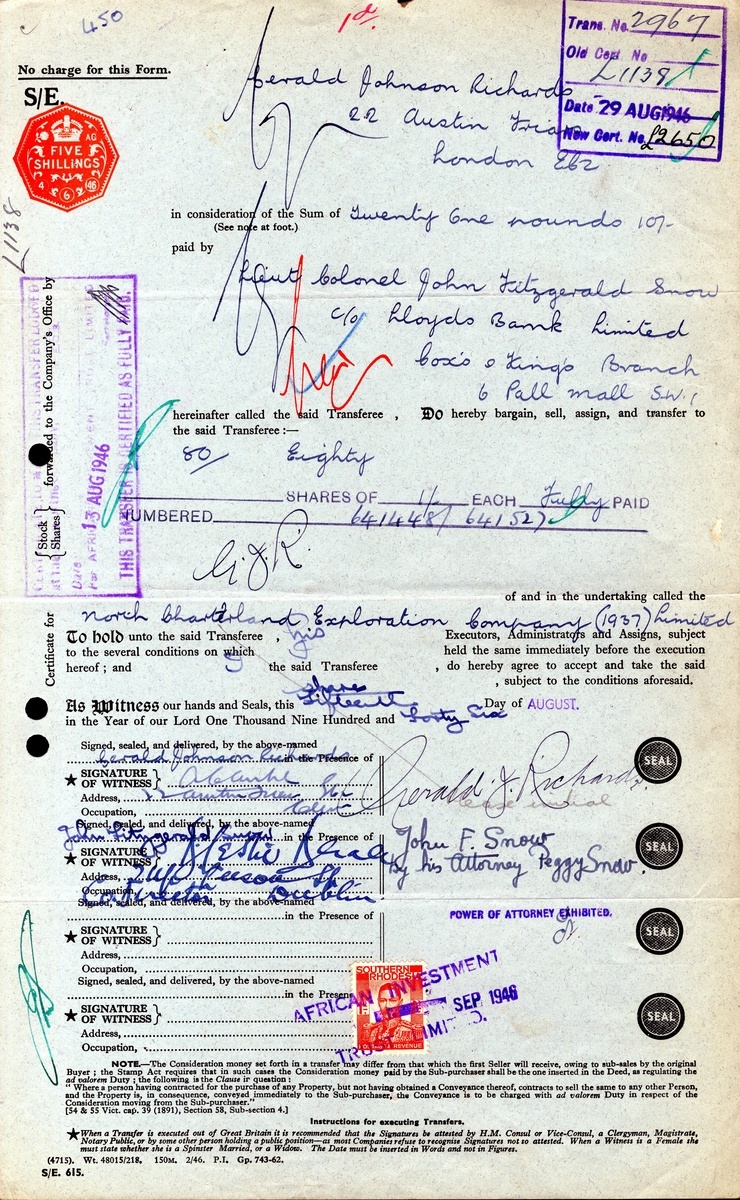 450
1d.
No charge for this Form.
S/E.
FIVE
SHILLINGS
AG
4 6 46
Trans. No. 2967
Old Cert. No
L1138
Date 29 AUG 1946
New Cert. No. L2650
Gerald Johnson Richards
22 Austin Friars
London EC2
L1138
in consideration of the Sum of Twenty One pounds 10/-
(See note at foot.)
paid by
Lieut Colonel John Fitzgerald Snow
c/o Lloyds Bank Limited
Cox's & King's Branch
6 Pall Mall S.W.1
hereinafter called the said Transferee , Do hereby bargain, sell, assign, and transfer to
the said Transferee :—
80/ Eighty
SHARES OF 1/- EACH Fully PAID
NUMBERED 641448/ 641527
G.J.R.
of and in the undertaking called the
North Charterland Exploration Company (1937) Limited
To hold unto the said Transferee , his Executors, Administrators and Assigns, subject
to the several conditions on which held the same immediately before the execution
hereof ; and the said Transferee , do hereby agree to accept and take the said
shares , subject to the conditions aforesaid.
As Witness our hands and Seals, this fifteenth Day of AUGUST.
in the Year of our Lord One Thousand Nine Hundred and Forty Six
Certificate for { Stock Shares } forwarded to the Company's Office by
Date 13 AUG 1946
THIS TRANSFER IS CERTIFIED AS FULLY PAID.
Signed, sealed, and delivered, by the above-named
Gerald Johnson Richards in the Presence of
★ SIGNATURE OF WITNESS }
Address,
Occupation,
Gerald J. Richards.
SEAL
Signed, sealed, and delivered, by the above-named
John Fitzgerald Snow in the Presence of
★ SIGNATURE OF WITNESS }
Address,
Occupation,
Dublin.
John F. Snow
by his Attorney Peggy Snow.
SEAL
Signed, sealed, and delivered, by the above-named
in the Presence of
★ SIGNATURE OF WITNESS }
Address,
Occupation,
POWER OF ATTORNEY EXHIBITED.
SEAL
Signed, sealed, and delivered, by the above-named
in the Presence
★ SIGNATURE OF WITNESS }
Address,
Occupation, .
SEAL
SOUTHERN
RHODESIA
REVENUE
AFRICAN INVESTMENT
SEP 1946
TRUST LIMITED.
NOTE.—The Consideration money set forth in a transfer may differ from that which the first Seller will receive, owing to sub-sales by the original
Buyer ; the Stamp Act requires that in such cases the Consideration money paid by the Sub-purchaser shall be the one inserted in the Deed, as regulating the
ad valorem Duty ; the following is the Clause in question :
"Where a person having contracted for the purchase of any Property, but not having obtained a Conveyance thereof, contracts to sell the same to any other Person,
and the Property is, in consequence, conveyed immediately to the Sub-purchaser, the Conveyance is to be charged with ad valorem Duty in respect of the
Consideration moving from the Sub-purchaser."
[54 & 55 Vict. cap. 39 (1891), Section 58, Sub-section 4.]
Instructions for executing Transfers.
★When a Transfer is executed out of Great Britain it is recommended that the Signatures be attested by H.M. Consul or Vice-Consul, a Clergyman, Magistrate,
Notary Public, or by some other person holding a public position—as most Companies refuse to recognise Signatures not so attested. When a Witness is a Female she
must state whether she is a Spinster Married, or a Widow. The Date must be inserted in Words and not in Figures.
(4715). Wt. 48015/218. 150M. 2/46. P.I. Gp. 743-62.
S/E. 615.